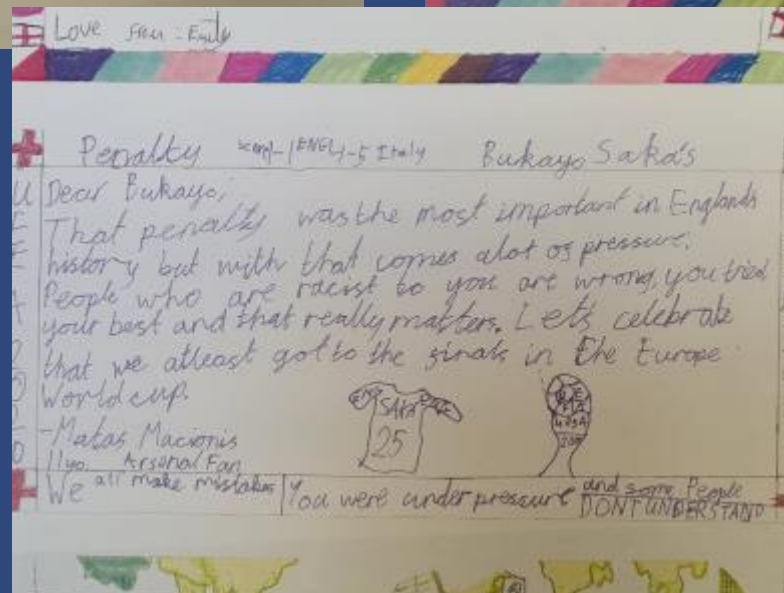 Love from : Emily
Penalty ENG Italy Bukayo Saka's
UEFA 2020
Dear Bukayo,
That penalty was the most important in Englands
history but with that comes alot of pressure.
People who are racist to you are wrong, you tried
your best and that really matters. Let's celebrate
that we atleast got to the finals in the Europe
World cup.
-Matas Macionis
11yo. Arsonal Fan
SAKA
25
We all make mistakes
You were under pressure and some People
DONT UNDERSTAND